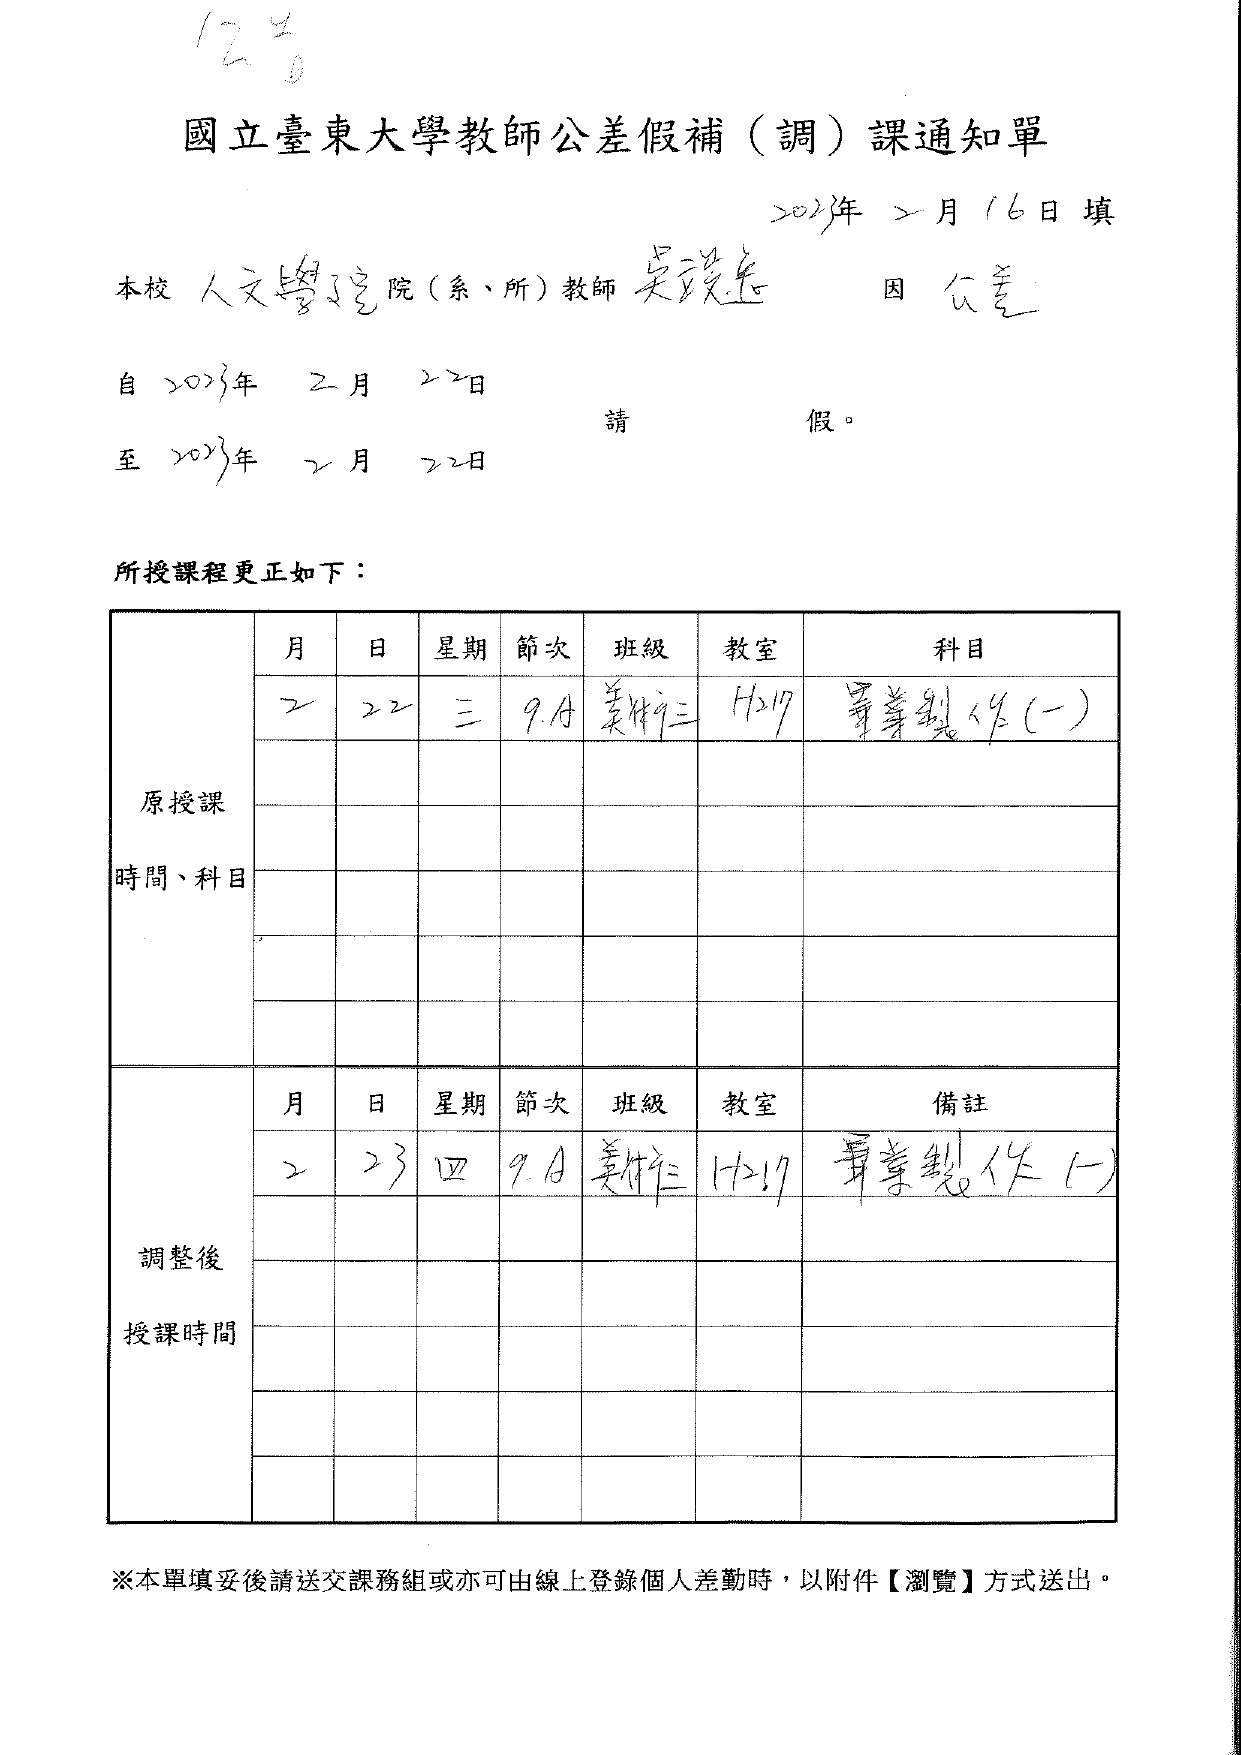 國立臺東大學教師公差假補（調）課通知單
2023年 2月 16日 填
本校 人文學院 院（系、所）教師 吳 因 公差
自 2023年 2月 22日
請 假。
至 2023年 2月 22日
所授課程更正如下：
月 日 星期 節次 班級 教室 科目
2 22 三 9.A 美術三 H217 畢業製作(一)
原授課
時間、科目
月 日 星期 節次 班級 教室 備註
2 23 四 9.A 美術三 H217 畢業製作(一)
調整後
授課時間
※本單填妥後請送交課務組或亦可由線上登錄個人差勤時，以附件【瀏覽】方式送出。